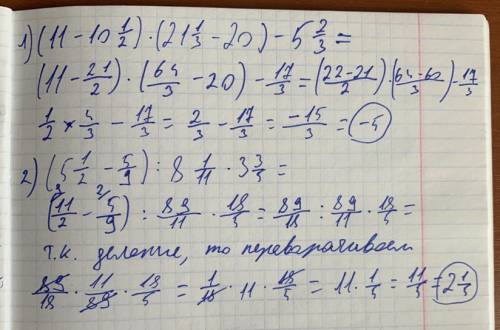 1) (11 - 10 1/2) · (21 1/3 - 20) - 5 2/3 =
(11 - 21/2) · (64/3 - 20) - 17/3 = (22-21/2) · (64-60/3) - 17/3
1/2 × 4/3 - 17/3 = 2/3 - 17/3 = -15/3 = -5
2) (5 1/2 - 5/9) : 8 1/11 · 3 3/5 =
(11/2 - 5/9) : 89/11 · 18/5 = 89/18 : 89/11 · 18/5 =
т.к. деление, то переворачиваем
89/18 · 11/89 · 18/5 = 1/18 · 11 · 18/5 = 11 · 1/5 = 11/5 = 2 1/5